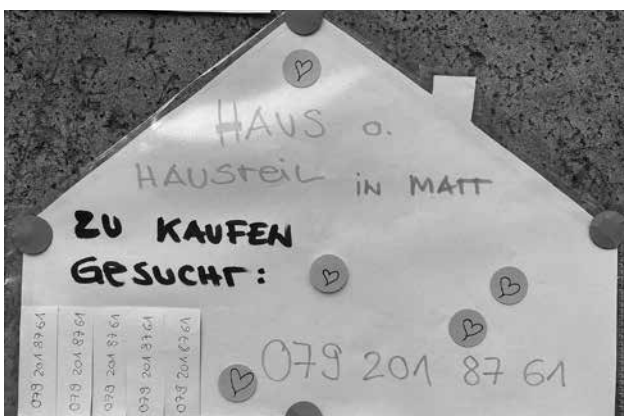 HAUS o.
HAUSTEIL IN MATT
ZU KAUFEN
GESUCHT:
079 201 87 61
079 201 87 61
079 201 87 61
079 201 87 61
079 201 87 61
079 201 87 61